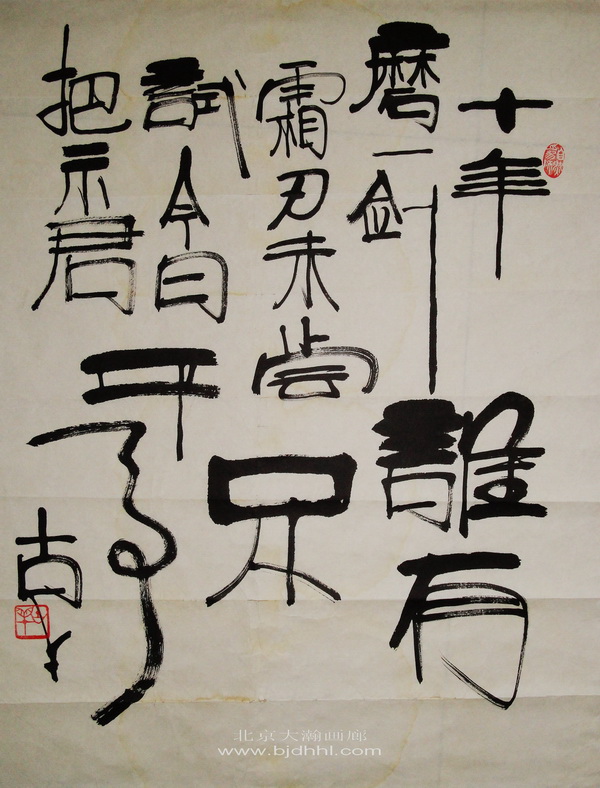 十年
磨一剑
霜刃未尝
試今日
把示君
誰有
不
平事
古干
北京大瀚画廊
www.bjdhhl.com